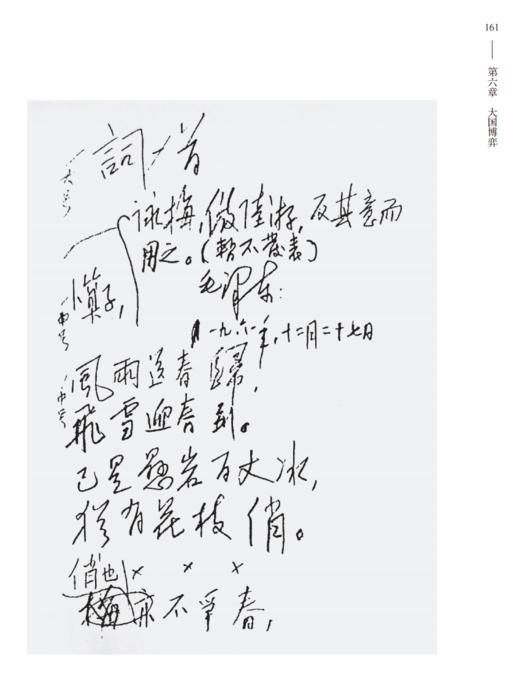 161
第六章 大国博弈
詞一首
大号
咏梅,倣陸游,反其意而
用之。(暫不發表)
毛泽东:
卜算子,
中号
一九六一年,十二月二十七日
中号
風雨送春歸,
飛雪迎春到。
已是懸岩百丈冰,
猶有花枝俏。
× × ×
俏也
梅亦不爭春,